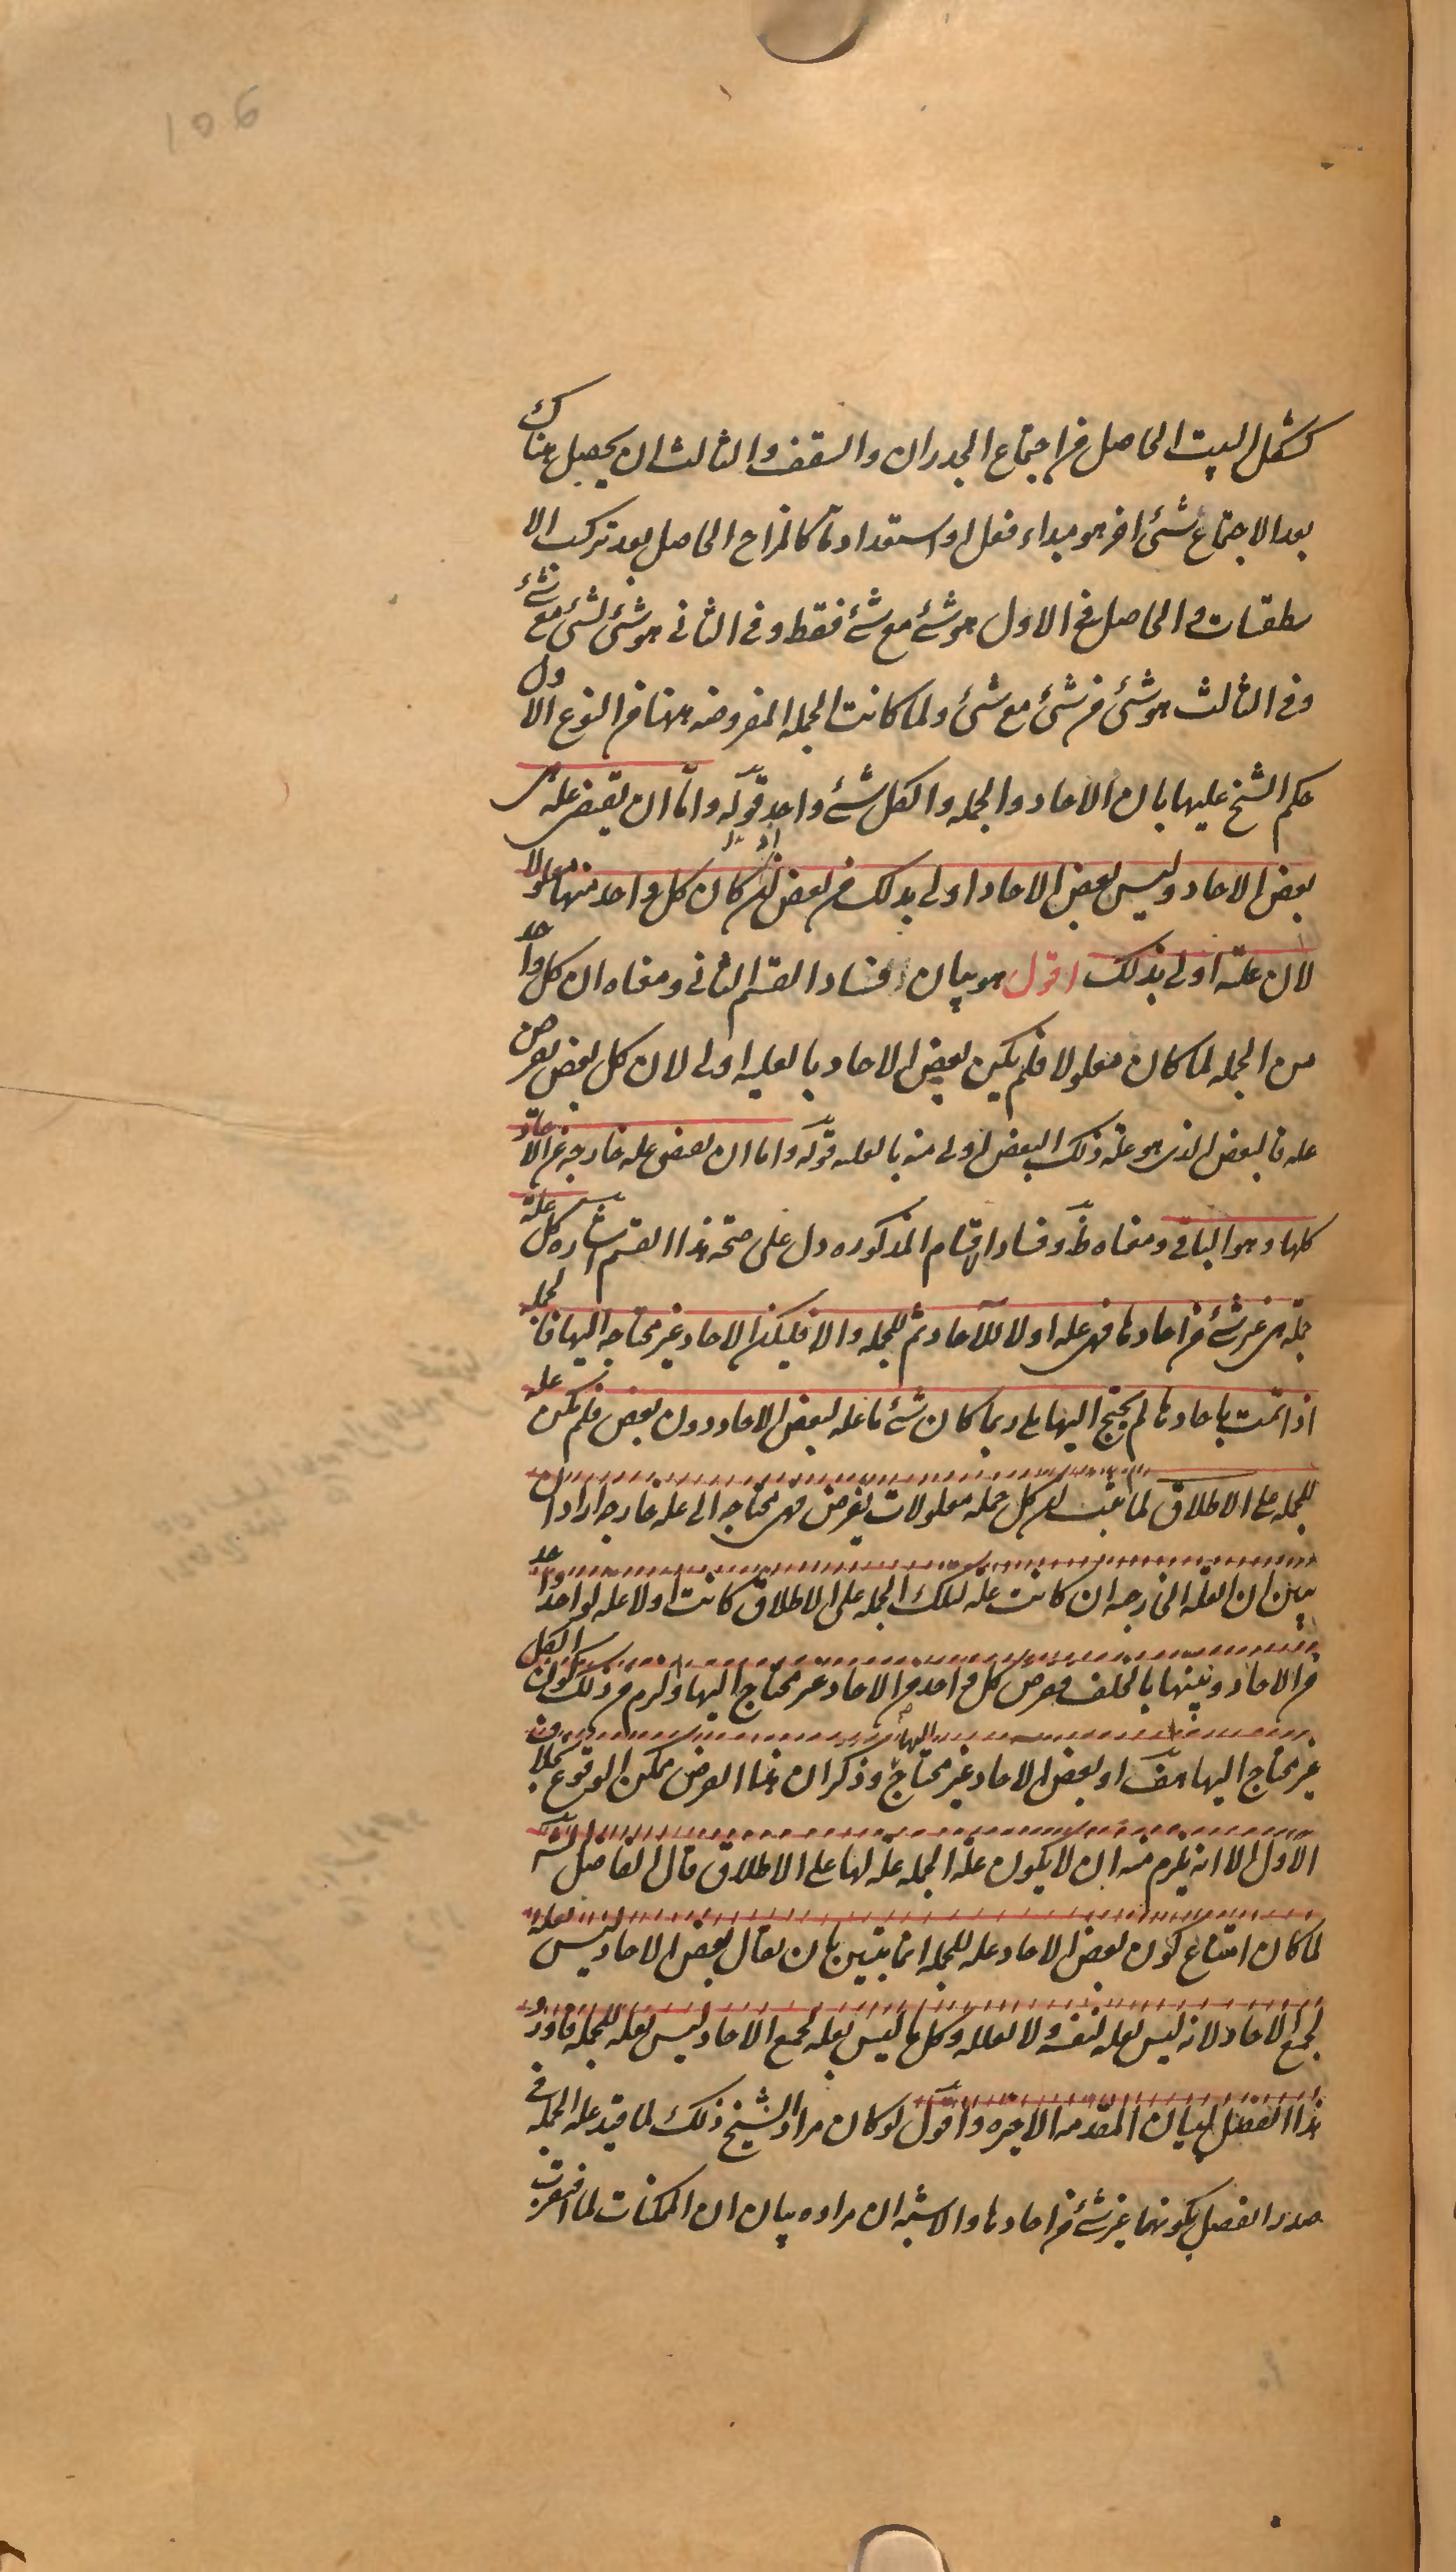 106
كشكل البيت الحاصل من اجتماع الجدران والسقف والثالث ان يحصل هناك
بعد الاجتماع شئ اخر هو مبداء فعل او استعداد ما كالمزاج الحاصل بعد تركب الا
سطقسات والحاصل فى الاول هو شئ مع شئ فقط وفى الثانى هو شئ لشئ مع شئ
وفى الثالث هو شئ من شئ مع شئ ولما كانت الجمله المفروضه ههنا من النوع الاول
حكم الشيخ عليها بان الاحاد والجمله والكل شئ واحد قوله واما ان يقتضى عله هى
بعض الاحاد وليس بعض الاحاد اولى بذلك من بعض اذ كان كل واحد منها معلولا
لان علته اولى بذلك اقول هو بيان فساد القسم الثانى ومعناه ان كل واحد
من الجمله لما كان معلولا فلم يكن بعض الاحاد بالعليه اولى لان كل بعض يفرض
عله فالبعض الذى هو علة ذلك البعض اولى منه بالعليه قوله واما ان يقتضى عله خارجه عن الاحاد
كلها وهو الباقى ومعناه ظ وفساد الاقسام المذكوره دل على صحة هذا القسم اشاره كل علة
جملة هى غير شئ من احادها فهى عله اولا للآحاد ثم للجمله والا فليكن الاحاد غير محتاجه اليها فالجمله
اذا تمت باحادها لم يحتج اليها بل ربما كان شئ ما عله لبعض الاحاد دون بعض فلم يكن عله
للجمله على الاطلاق لما ثبت ان كل جمله معلولات يفرض فهى محتاجه الى عله خارجه اراد ان
يبين ان العله الخارجه ان كانت علة لتلك الجمله على الاطلاق كانت اولا عله لواحد واحد
من الاحاد وبينها بالخلف وفرض كل واحد من الاحاد غير محتاج اليها ولزم من ذلك كون الكل
غير محتاج اليها هف او بعض الاحاد غير محتاج اليها وذكر ان هذا الفرض ممكن الوقوع بخلاف
الاول الا انه يلزم منه ان لا يكون علة الجمله علة لها على الاطلاق قال الفاضل الشه
لما كان امتناع كون بعض الاحاد عله للجمله انما يتبين بان يقال بعض الاحاد ليس بعله
لجميع الاحاد لانه ليس بعله لنفسه ولا لعلله وكل ما ليس بعله لجميع الاحاد ليس بعله للجمله فاورد
هذا الفصل لبيان المقدمه الاخيره واقول لو كان مراد الشيخ ذلك لما قيد عله الجمله فى
صدر الفصل بكونها غير شئ من احادها والاشبه ان مراده بيان ان الممكنات لما افتقرت